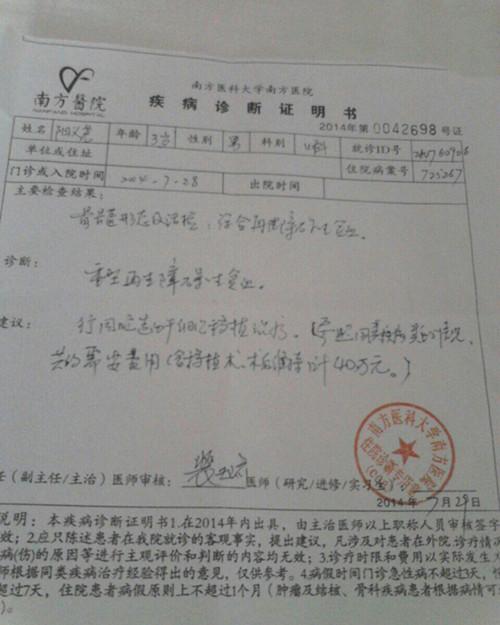 南方醫院
NANFANG HOSPITAL
南方医科大学南方医院
疾病诊断证明书
2014年第0042698号证
姓名 年龄 3岁 性别 男 科别 就诊ID号
单位或住址 住院病案号 725267
门诊或入院时间 2014-7-28 出院时间
主要检查结果:
骨髓形态及活检:符合再生障碍性贫血。
诊断:
重型再生障碍性贫血。
建议:
行同胞造血干细胞移植治疗。
共约需要费用 计40万元。)
任(副主任/主治)医师审核: 医师(研究/进修/实习生)
南方医科大学南方医院
2014年7月29日
说明:本疾病诊断证明书1.在2014年内出具,由主治医师以上职称人员审核签字
效;2.应只陈述患者在我院就诊的客观事实,提出建议,凡涉及对患者在外院诊疗情况
病(伤)的原因等进行主观评价和判断的内容均无效;3.诊疗时限和费用以实际发生为
师根据同类疾病治疗经验得出的意见,仅供参考。4.病假时间门诊急性病不超过3天,
超过7天,住院患者病假原则上不超过1个月(肿瘤及结核、骨科疾病患者根据病情可
)。